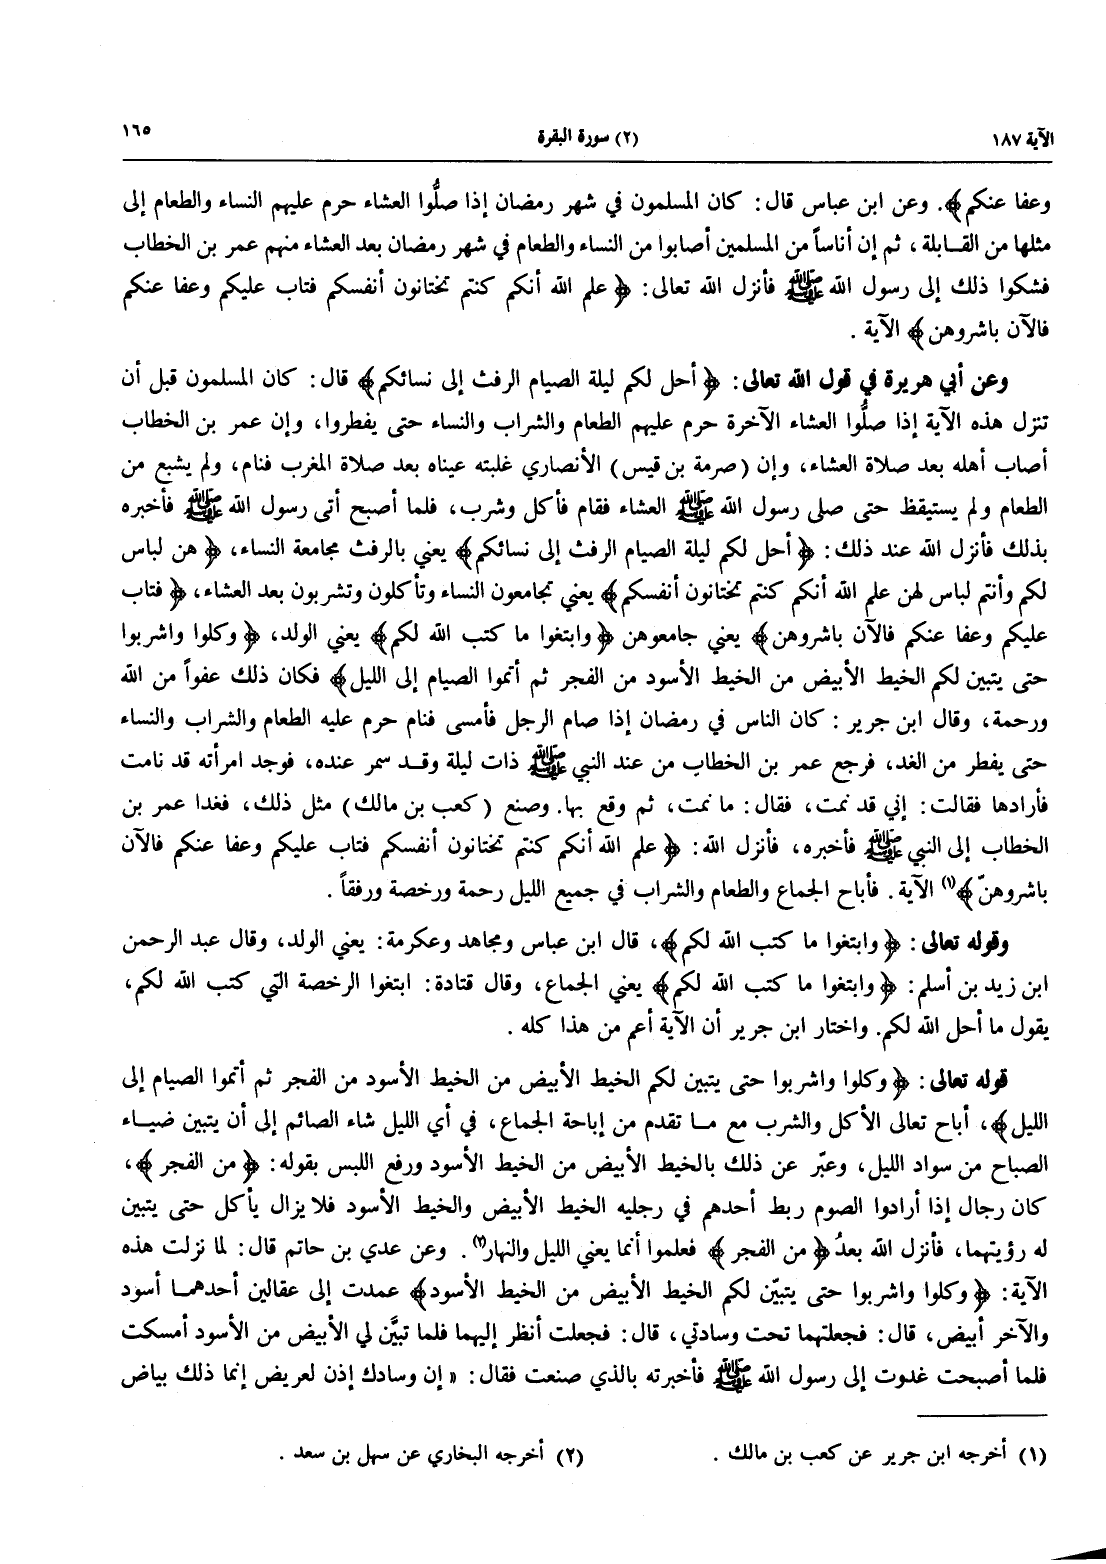 الآية ١٨٧ (٢) سورة البقرة ١٦٥
وعفا عنكم﴾. وعن ابن عباس قال: كان المسلمون في شهر رمضان إذا صلُّوا العشاء حرم عليهم النساء والطعام إلى
مثلها من القابلة، ثم إن أناساً من المسلمين أصابوا من النساء والطعام في شهر رمضان بعد العشاء منهم عمر بن الخطاب
فشكوا ذلك إلى رسول الله ﷺ فأنزل الله تعالى: ﴿علم الله أنكم كنتم تختانون أنفسكم فتاب عليكم وعفا عنكم
فالآن باشروهن﴾ الآية.
وعن أبي هريرة في قول الله تعالى: ﴿أحل لكم ليلة الصيام الرفث إلى نسائكم﴾ قال: كان المسلمون قبل أن
تنزل هذه الآية إذا صلُّوا العشاء الآخرة حرم عليهم الطعام والشراب والنساء حتى يفطروا، وإن عمر بن الخطاب
أصاب أهله بعد صلاة العشاء، وإن (صرمة بن قيس) الأنصاري غلبته عيناه بعد صلاة المغرب فنام، ولم يشبع من
الطعام ولم يستيقظ حتى صلى رسول الله ﷺ العشاء فقام فأكل وشرب، فلما أصبح أتى رسول الله ﷺ فأخبره
بذلك فأنزل الله عند ذلك: ﴿أحل لكم ليلة الصيام الرفث إلى نسائكم﴾ يعني بالرفث مجامعة النساء، ﴿هن لباس
لكم وأنتم لباس لهن علم الله أنكم كنتم تختانون أنفسكم﴾ يعني تجامعون النساء وتأكلون وتشربون بعد العشاء، ﴿فتاب
عليكم وعفا عنكم فالآن باشروهن﴾ يعني جامعوهن ﴿وابتغوا ما كتب الله لكم﴾ يعني الولد، ﴿وكلوا واشربوا
حتى يتبين لكم الخيط الأبيض من الخيط الأسود من الفجر ثم أتموا الصيام إلى الليل﴾ فكان ذلك عفواً من الله
ورحمة، وقال ابن جرير: كان الناس في رمضان إذا صام الرجل فأمسى فنام حرم عليه الطعام والشراب والنساء
حتى يفطر من الغد، فرجع عمر بن الخطاب من عند النبي ﷺ ذات ليلة وقد سمر عنده، فوجد امرأته قد نامت
فأرادها فقالت: إني قد نمت، فقال: ما نمت، ثم وقع بها. وصنع (كعب بن مالك) مثل ذلك، فغدا عمر بن
الخطاب إلى النبي ﷺ فأخبره، فأنزل الله: ﴿علم الله أنكم كنتم تختانون أنفسكم فتاب عليكم وعفا عنكم فالآن
باشروهنّ﴾(١) الآية. فأباح الجماع والطعام والشراب في جميع الليل رحمة ورخصة ورفقاً.
وقوله تعالى: ﴿وابتغوا ما كتب الله لكم﴾، قال ابن عباس ومجاهد وعكرمة: يعني الولد، وقال عبد الرحمن
ابن زيد بن أسلم: ﴿وابتغوا ما كتب الله لكم﴾ يعني الجماع، وقال قتادة: ابتغوا الرخصة التي كتب الله لكم،
يقول ما أحل الله لكم. واختار ابن جرير أن الآية أعم من هذا كله.
قوله تعالى: ﴿وكلوا واشربوا حتى يتبين لكم الخيط الأبيض من الخيط الأسود من الفجر ثم أتموا الصيام إلى
الليل﴾، أباح تعالى الأكل والشرب مع ما تقدم من إباحة الجماع، في أي الليل شاء الصائم إلى أن يتبين ضياء
الصباح من سواد الليل، وعبّر عن ذلك بالخيط الأبيض من الخيط الأسود ورفع اللبس بقوله: ﴿من الفجر﴾،
كان رجال إذا أرادوا الصوم ربط أحدهم في رجليه الخيط الأبيض والخيط الأسود فلا يزال يأكل حتى يتبين
له رؤيتهما، فأنزل الله بعدُ ﴿من الفجر﴾ فعلموا أنما يعني الليل والنهار(٢). وعن عدي بن حاتم قال: لما نزلت هذه
الآية: ﴿وكلوا واشربوا حتى يتبيّن لكم الخيط الأبيض من الخيط الأسود﴾ عمدت إلى عقالين أحدهما أسود
والآخر أبيض، قال: فجعلتهما تحت وسادتي، قال: فجعلت أنظر إليهما فلما تبيَّن لي الأبيض من الأسود أمسكت
فلما أصبحت غدوت إلى رسول الله ﷺ فأخبرته بالذي صنعت فقال: «إن وسادك إذن لعريض إنما ذلك بياض
(١) أخرجه ابن جرير عن كعب بن مالك. (٢) أخرجه البخاري عن سهل بن سعد.